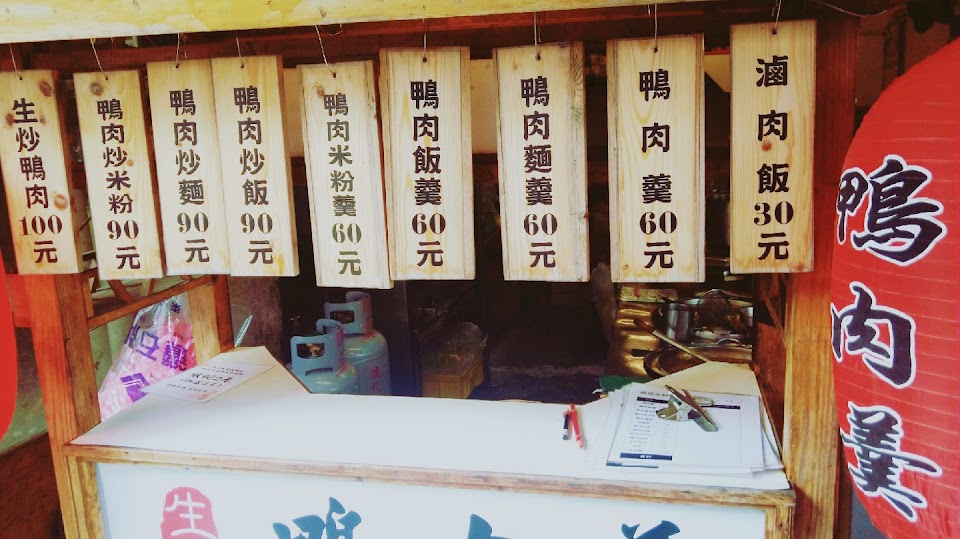 滷肉飯 30元
鴨肉羹 60元
鴨肉麵羹 60元
鴨肉飯羹 60元
鴨肉米粉羹 60元
鴨肉炒飯 90元
鴨肉炒麵 90元
鴨肉炒米粉 90元
生炒鴨肉 100元
鴨肉羹
生